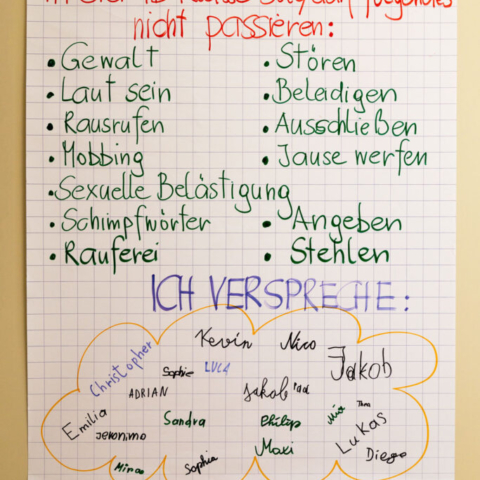 nicht passieren:
• Gewalt • Stören
• Laut sein • Beleidigen
• Rausrufen • Ausschließen
• Mobbing • Jause werfen
• Sexuelle Belästigung
• Schimpfwörter • Angeben
• Rauferei • Stehlen
ICH VERSPRECHE:
Kevin Nico
Christopher Sophie LUCA Jakob
ADRIAN Jakob
Emilia Sandra Philip Mia
Jeronimo Maxi LUKAS
Sophia Diego